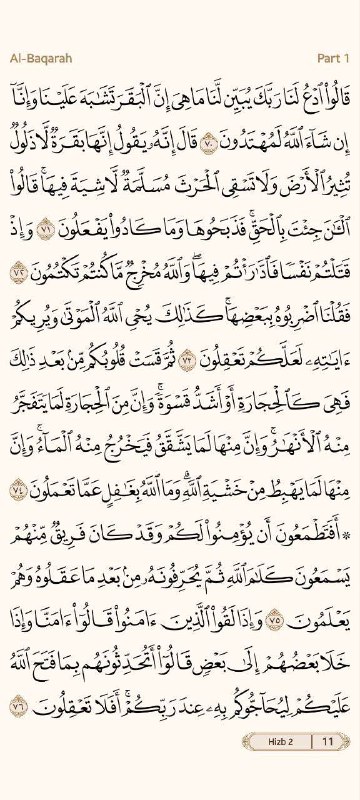 Al-Baqarah Part 1
قَالُوا۟ ٱدْعُ لَنَا رَبَّكَ يُبَيِّن لَّنَا مَا هِىَ إِنَّ ٱلْبَقَرَ تَشَـٰبَهَ عَلَيْنَا وَإِنَّآ
إِن شَآءَ ٱللَّهُ لَمُهْتَدُونَ ٧٠ قَالَ إِنَّهُۥ يَقُولُ إِنَّهَا بَقَرَةٌ لَّا ذَلُولٌ
تُثِيرُ ٱلْأَرْضَ وَلَا تَسْقِى ٱلْحَرْثَ مُسَلَّمَةٌ لَّا شِيَةَ فِيهَا ۚ قَالُوا۟
ٱلْـَٔـٰنَ جِئْتَ بِٱلْحَقِّ ۚ فَذَبَحُوهَا وَمَا كَادُوا۟ يَفْعَلُونَ ٧١ وَإِذْ
قَتَلْتُمْ نَفْسًا فَٱدَّٰرَْٰٔتُمْ فِيهَا ۖ وَٱللَّهُ مُخْرِجٌ مَّا كُنتُمْ تَكْتُمُونَ ٧٢
فَقُلْنَا ٱضْرِبُوهُ بِبَعْضِهَا ۚ كَذَٰلِكَ يُحْىِ ٱللَّهُ ٱلْمَوْتَىٰ وَيُرِيكُمْ
ءَايَـٰتِهِۦ لَعَلَّكُمْ تَعْقِلُونَ ٧٣ ثُمَّ قَسَتْ قُلُوبُكُم مِّنۢ بَعْدِ ذَٰلِكَ
فَهِىَ كَٱلْحِجَارَةِ أَوْ أَشَدُّ قَسْوَةً ۚ وَإِنَّ مِنَ ٱلْحِجَارَةِ لَمَا يَتَفَجَّرُ
مِنْهُ ٱلْأَنْهَـٰرُ ۚ وَإِنَّ مِنْهَا لَمَا يَشَّقَّقُ فَيَخْرُجُ مِنْهُ ٱلْمَآءُ ۚ وَإِنَّ
مِنْهَا لَمَا يَهْبِطُ مِنْ خَشْيَةِ ٱللَّهِ ۗ وَمَا ٱللَّهُ بِغَـٰفِلٍ عَمَّا تَعْمَلُونَ ٧٤
۞ أَفَتَطْمَعُونَ أَن يُؤْمِنُوا۟ لَكُمْ وَقَدْ كَانَ فَرِيقٌ مِّنْهُمْ
يَسْمَعُونَ كَلَـٰمَ ٱللَّهِ ثُمَّ يُحَرِّفُونَهُۥ مِنۢ بَعْدِ مَا عَقَلُوهُ وَهُمْ
يَعْلَمُونَ ٧٥ وَإِذَا لَقُوا۟ ٱلَّذِينَ ءَامَنُوا۟ قَالُوٓا۟ ءَامَنَّا وَإِذَا
خَلَا بَعْضُهُمْ إِلَىٰ بَعْضٍ قَالُوٓا۟ أَتُحَدِّثُونَهُم بِمَا فَتَحَ ٱللَّهُ
عَلَيْكُمْ لِيُحَآجُّوكُم بِهِۦ عِندَ رَبِّكُمْ ۚ أَفَلَا تَعْقِلُونَ ٧٦
Hizb 2 11